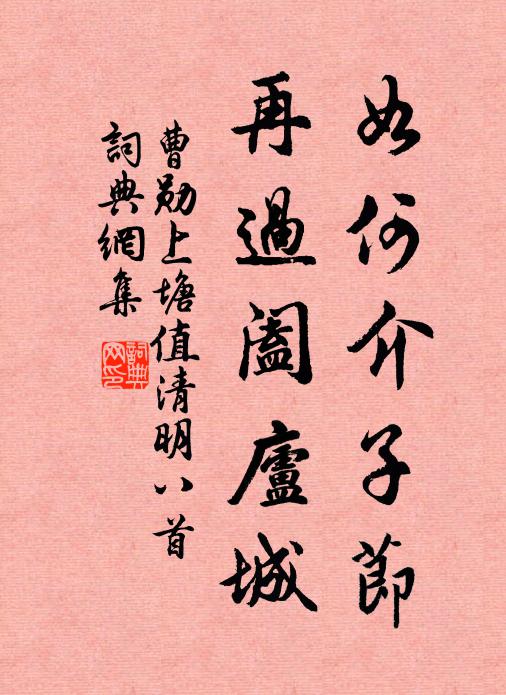 如何介子節
再過闔廬城
曹勛上塘值清明八首
詞典網集
詞典網印